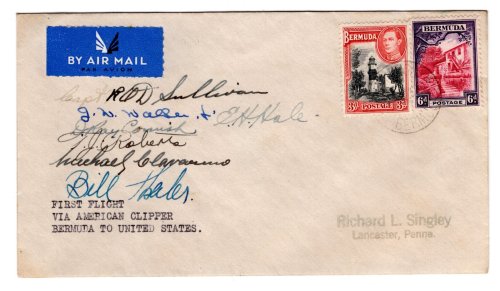 BY AIR MAIL
PAR AVION
BERMUDA
3d POSTAGE 3d
BERMUDA
6d POSTAGE 6d
Capt. R.O.D. Sullivan
E.H. Hale
J. C. Roberts
Michael
Bill
FIRST FLIGHT
VIA AMERICAN CLIPPER
BERMUDA TO UNITED STATES.
Richard L. Singley
Lancaster, Penna.